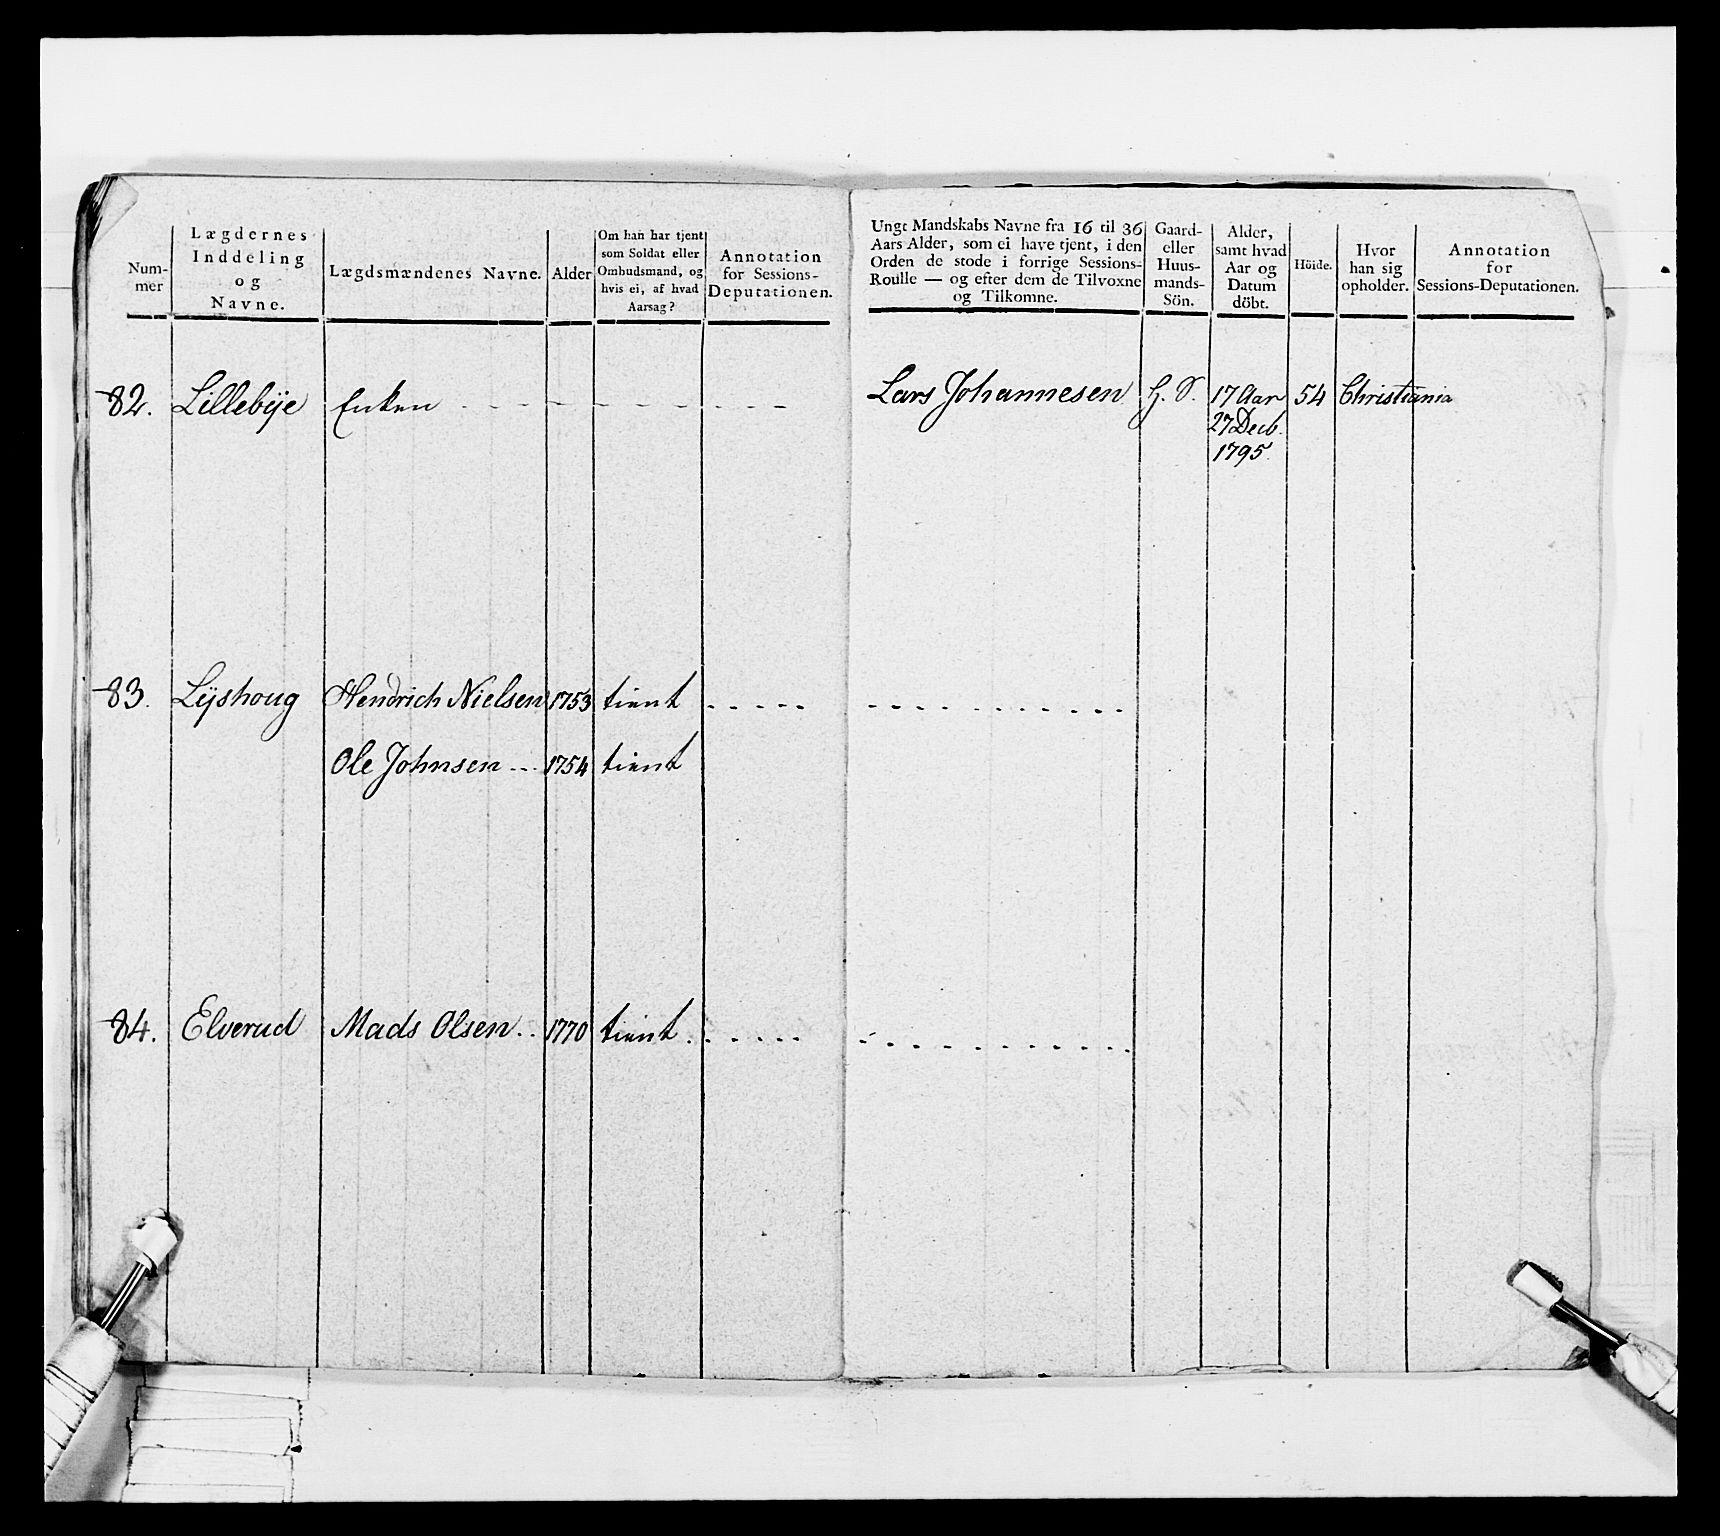 Num-
mer
Lægdernes
Inddeling
og
Navne.
Lægdsmændenes Navne.
Alder
Om han har tjent
som Soldat eller
Ombudsmand, og
hvis ei, af hvad
Aarsag?
Annotation
for Sessions-
Deputationen.
Ungt Mandskabs Navne fra 16 til 36
Aars Alder, som ei have tjent, i den
Orden de stode i forrige Sessions-
Roulle — og efter dem de Tilvoxne
og Tilkomne.
Gaard-
eller
Huus-
mands-
Sön.
Alder,
samt hvad
Aar og
Datum
döbt.
Höide.
Hvor
han sig
opholder.
Annotation
for
Sessions-Deputationen.
82. Lillebÿe Enken - - - - - - - - - Lars Johannesen G. S. 17 Aar 54 Christiania
27 Decb.
1795.
83. Lÿshoug Hendrich Nielsen 1753 tient - - - - - - - - - - - - - - -
Ole Johnsen - - - 1754 tient
84. Elverud Mads Olsen . . 1770 tient . - - - - - - - - - - - - - -